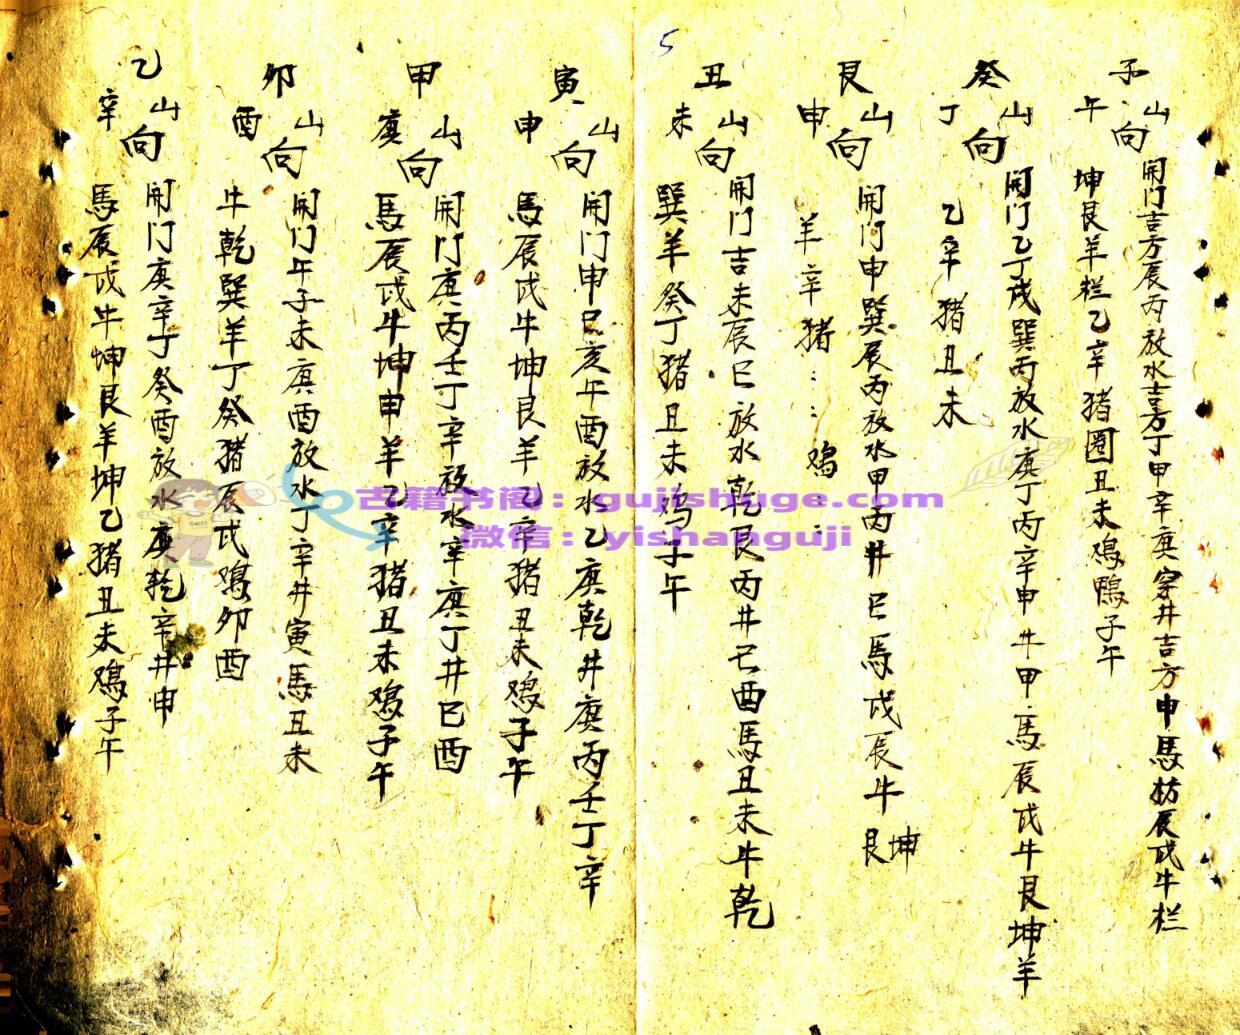 5
子山午向
開门吉方辰丙放水吉方丁甲辛庚穿井吉方申馬枋辰戌牛栏
坤艮羊栏乙辛猪圈丑未鸡鴨子午
癸山丁向
開门乙丁戌巽丙放水庚丁丙辛申井甲馬辰戌牛艮坤羊
乙辛猪丑未
艮山申向
開门申巽辰丙放水甲丙井巳馬戌辰牛艮坤
羊辛猪：：鸡：
丑山未向
開门吉未辰巳放水乾艮丙井巳酉馬丑未牛乾
巽羊癸丁猪丑未鸡子午
寅山申向
開门申巳亥午酉放水乙庚乾井庚丙壬丁辛
馬辰戌牛坤艮羊乙辛猪丑未鸡子午
甲山庚向
開门庚丙壬丁辛放水辛庚丁井巳酉
馬辰戌牛坤申羊乙辛猪丑未鸡子午
卯山酉向
開门午子未庚酉放水丁辛井寅馬丑未
牛乾巽羊丁癸猪辰戌鸡卯酉
乙山辛向
開门庚辛丁癸酉放水庚乾辛井申
馬辰戌牛坤艮羊坤乙猪丑未鸡子午
古籍书阁：gujishuge.com
微信：yishanguji